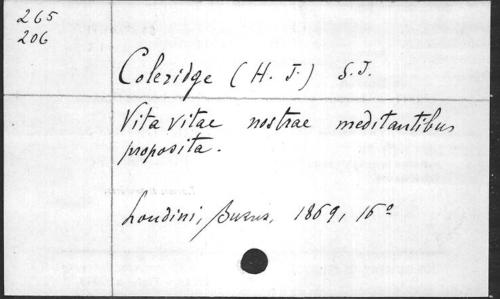 265
206
Coleridge (H. J.) S.J.
Vita vitae nostrae meditantibus
proposita.
Londini, Burns, 1869, 16º